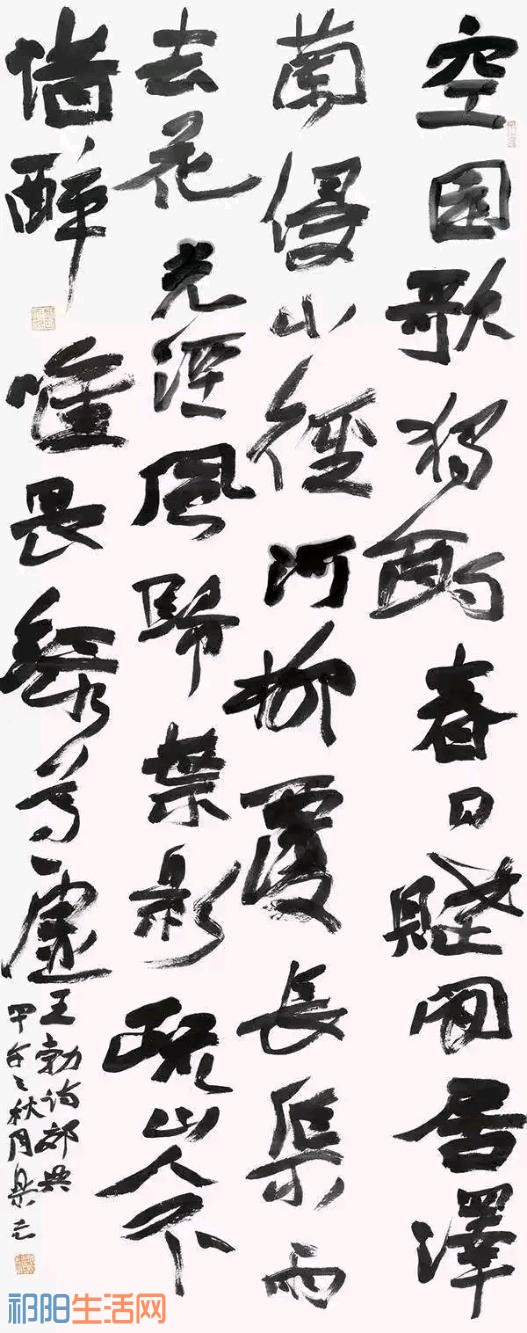 空园歌独酌春日赋闲居澤
蘭侵小徑河柳覆長渠雨
去花光溼風歸葉影疏山人不
惜醉唯畏綠尊虛
王勃诗郊兴
甲午之秋月
祁阳生活网